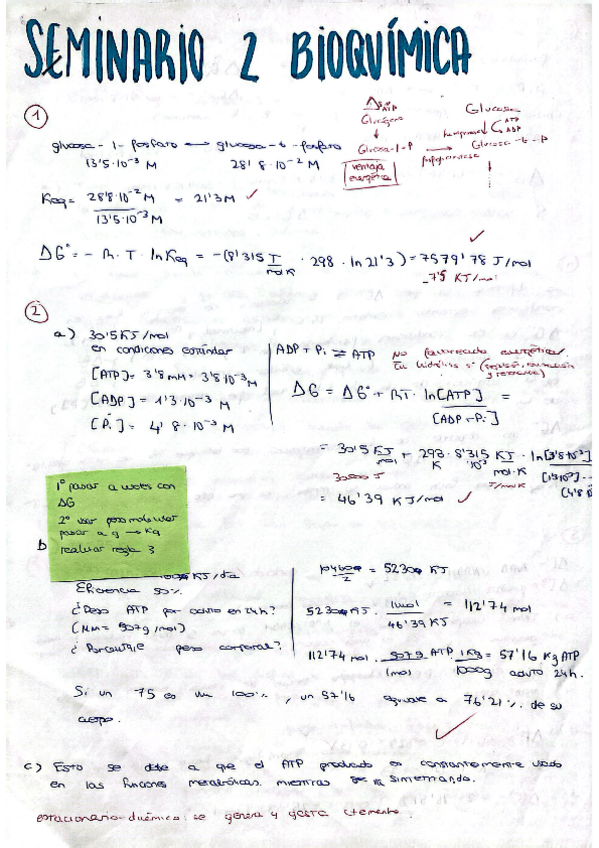 SEMINARIO 2 BIOQUÍMICA
①
glucosa - 1 - fosfato ⟷ glucosa - 6 - fosfato
13'5·10⁻³ M 28'8·10⁻² M
ATP
Glucógeno
Glucosa-1-P
ventaja
energética
Glucosa
ATP
ADP
Glucosa-6-P
Keq = 28'8·10⁻² M / 13'5·10⁻³ M = 21'3 M ✓
ΔG° = - R · T · ln Keq = -(8'315 J/mol K · 298 · ln 21'3) = 7579'78 J/mol
-7'5 KJ/mol
②
a) 30'5 KJ/mol
en condiciones estándar
[ATP] = 3'8 mM = 3'8·10⁻³ M
[ADP] = 1'3·10⁻³ M
[Pi] = 4'8·10⁻³ M
ADP + Pi ⇌ ATP No energética.
En hidrólisis sí
ΔG = ΔG° + RT · ln [ATP] / [ADP+Pi] =
= 30'5 KJ/mol + 298 K · 8'315 ·10⁻³ KJ/mol·K · ln [3'8·10⁻³] / [1'3·10⁻³]...
30500 J J/mol K (4'8·
= 46'39 KJ/mol ✓
1º pasar a moles con
ΔG
2º usar peso molecular
pasar a g → Kg
realizar regla 3
b
KJ/día
Eficiencia 50%
¿Peso ATP por adulto en 24h?
(MM = 507g/mol)
¿Porcentaje peso corporal?
104600/2 = 52300 KJ
52300 KJ · 1mol / 46'39 KJ = 1127'4 mol
1127'4 mol · 507g ATP / 1mol · 1Kg / 1000g = 571'6 Kg ATP
adulto 24h.
Si un 75 es un 100%, un 57'16 equivale a 76'21% de su
cuerpo.
c) Esto se debe a que el ATP producido es constantemente usado
en las funciones metabólicas mientras
estacionario-dinámico: se genera y gasta